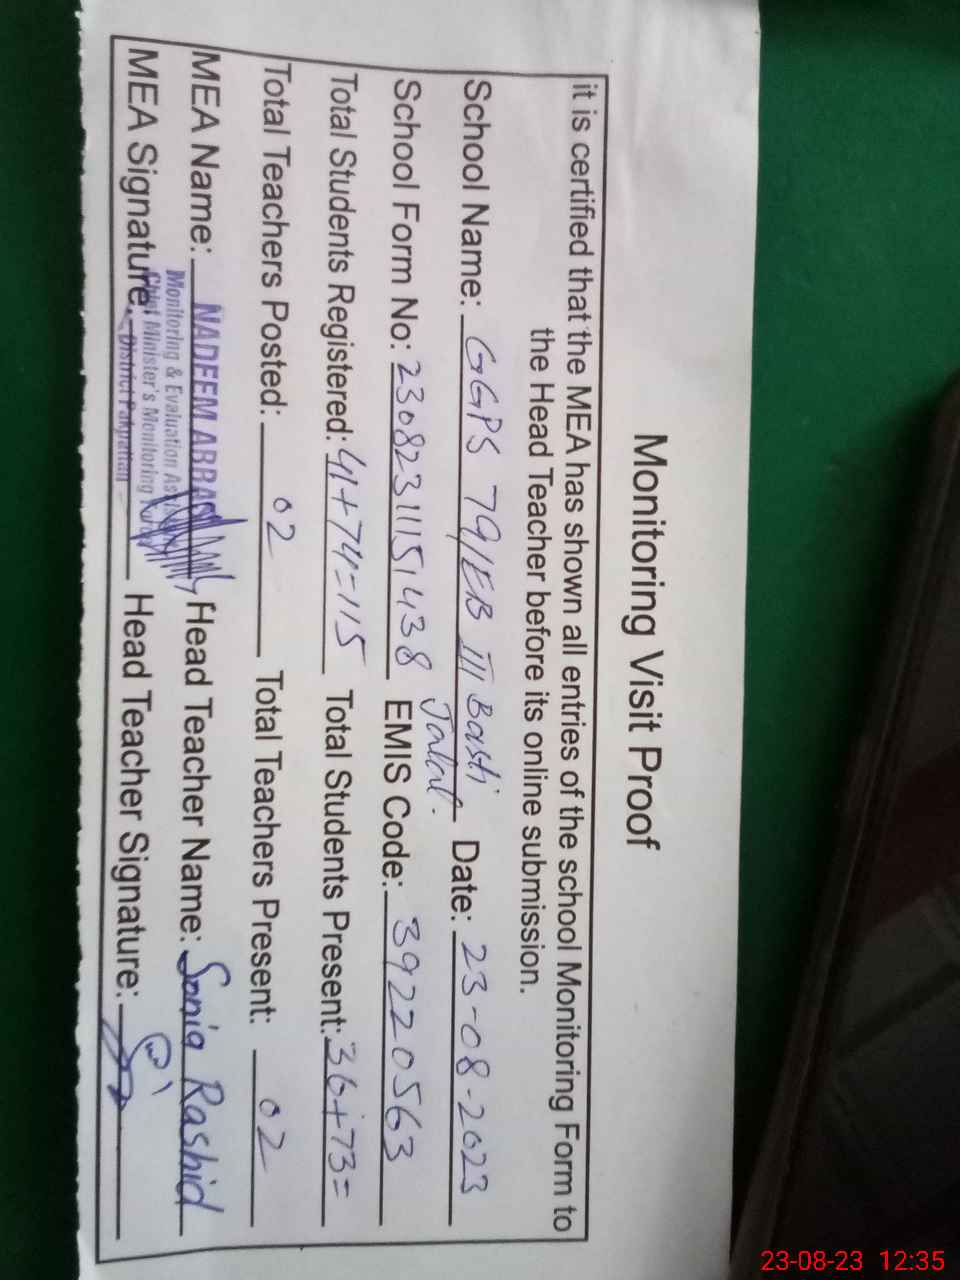 Monitoring Visit Proof
it is certified that the MEA has shown all entries of the school Monitoring Form to
the Head Teacher before its online submission.
School Name: GGPS 79/EB III Basti Jalal. Date: 23-08-2023
School Form No: 2308231151438 EMIS Code: 39220563
Total Students Registered: 41+74=115 Total Students Present: 36+73=
Total Teachers Posted: 02 Total Teachers Present: 02
MEA Name: NADEEM ABBAS Head Teacher Name: Sonia Rashid
Monitoring & Evaluation
MEA Signature: Head Teacher Signature:
Chief Minister's Monitoring
District Pakpattan
23-08-23 12:35